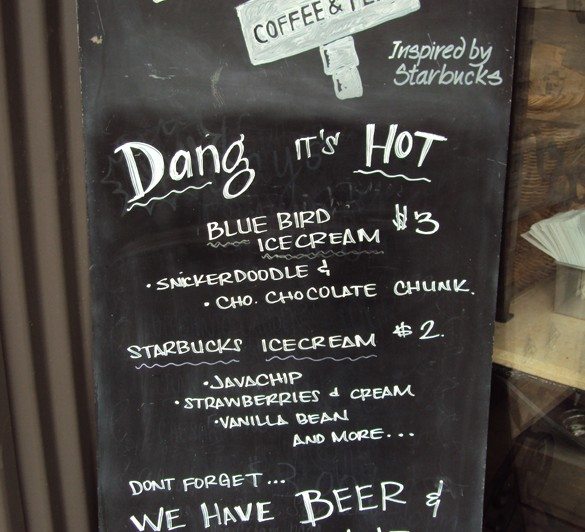 COFFEE &
Inspired by
Starbucks
Dang IT'S HOT
BLUE BIRD $3
ICECREAM
• SNICKERDOODLE &
• CHO. CHOCOLATE CHUNK.
STARBUCKS ICECREAM $2.
• JAVACHIP
• STRAWBERRIES & CREAM
• VANILLA BEAN
AND MORE...
DONT FORGET...
WE HAVE BEER &